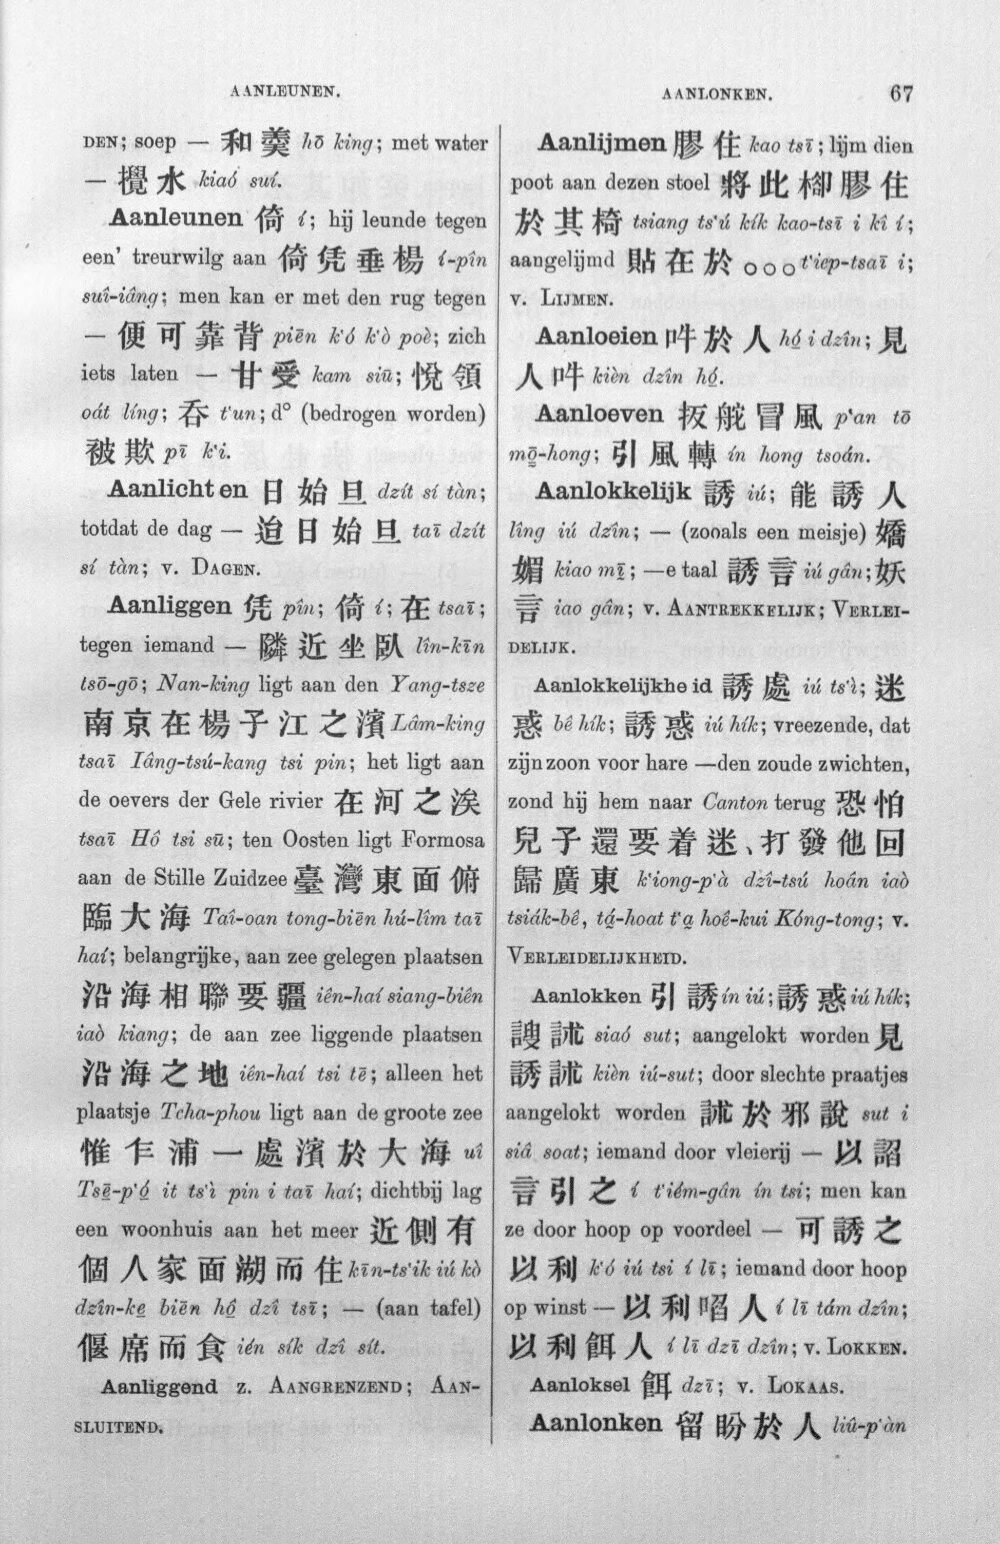 AANLEUNEN.
AANLONKEN. 67
DEN; soep — 和羹 hō king; met water
— 攪水 kiaó suí.
Aanleunen 倚 í; hij leunde tegen
een' treurwilg aan 倚凭垂楊 í-pîn
suî-iâng; men kan er met den rug tegen
— 便可靠背 piēn k'ó k'ò poè; zich
iets laten — 甘受 kam siū; 悅領
oát líng; 吞 t'un; d° (bedrogen worden)
被欺 pī k'i.
Aanlichten 日始旦 dzít sí tàn;
totdat de dag — 迨日始旦 taī dzít
sí tàn; v. DAGEN.
Aanliggen 凭 pîn; 倚 í; 在 tsaī;
tegen iemand — 隣近坐臥 lîn-kīn
tsō-gō; Nan-king ligt aan den Yang-tsze
南京在楊子江之濱 Lâm-king
tsaī Iâng-tsú-kang tsi pin; het ligt aan
de oevers der Gele rivier 在河之涘
tsaī Hô tsi sū; ten Oosten ligt Formosa
aan de Stille Zuidzee 臺灣東面俯
臨大海 Taî-oan tong-biēn hú-lîm taī
haí; belangrijke, aan zee gelegen plaatsen
沿海相聯要疆 iên-haí siang-biên
iaò kiang; de aan zee liggende plaatsen
沿海之地 iên-haí tsi tē; alleen het
plaatsje Tcha-phou ligt aan de groote zee
惟乍浦一處濱於大海 uî
Tsē̤-p'ó̤ it ts'ì pin i taī haí; dichtbij lag
een woonhuis aan het meer 近側有
個人家面湖而住 kīn-ts'ik iú kò
dzîn-ke̤ biēn hô̤ dzî tsī; — (aan tafel)
偃席而食 ién sík dzî sít.
Aanliggend z. AANGRENZEND; AAN-
SLUITEND.
Aanlijmen 膠住 kao tsī; lijm dien
poot aan dezen stoel 將此櫛膠住
於其椅 tsiang ts'ú kík kao-tsī i kî í;
aangelijmd 貼在於○○○ t'iep-tsaī i;
v. LIJMEN.
Aanloeien 吽於人 hó̤ i dzîn; 見
人吽 kièn dzîn hó̤.
Aanloeven 扳舵冒風 p'an tō
mō̤-hong; 引風轉 ín hong tsoán.
Aanlokkelijk 誘 iú; 能誘人
lîng iú dzîn; — (zooals een meisje) 嬌
媚 kiao mī̤; —e taal 誘言 iú gân; 妖
言 iao gân; v. AANTREKKELIJK; VERLEI-
DELIJK.
Aanlokkelijkheid 誘處 iú ts'ì; 迷
惑 bê hík; 誘惑 iú hík; vreezende, dat
zijn zoon voor hare —den zoude zwichten,
zond hij hem naar Canton terug 恐怕
兒子還要着迷、打發他回
歸廣東 k'iong-p'à dzî-tsú hoân iaò
tsiák-bê, tá̤-hoat t'a̤ hoê-kui Kóng-tong; v.
VERLEIDELIJKHEID.
Aanlokken 引誘 ín iú; 誘惑 iú hík;
謏訹 siaó sut; aangelokt worden 見
誘訹 kièn iú-sut; door slechte praatjes
aangelokt worden 訹於邪說 sut i
siâ soat; iemand door vleierij — 以謟
言引之 í t'iém-gân ín tsi; men kan
ze door hoop op voordeel — 可誘之
以利 k'ó iú tsi í lī; iemand door hoop
op winst — 以利啗人 í lī tám dzîn;
以利餌人 í lī dzī dzîn; v. LOKKEN.
Aanloksel 餌 dzī; v. LOKAAS.
Aanlonken 留盼於人 liû-p'àn